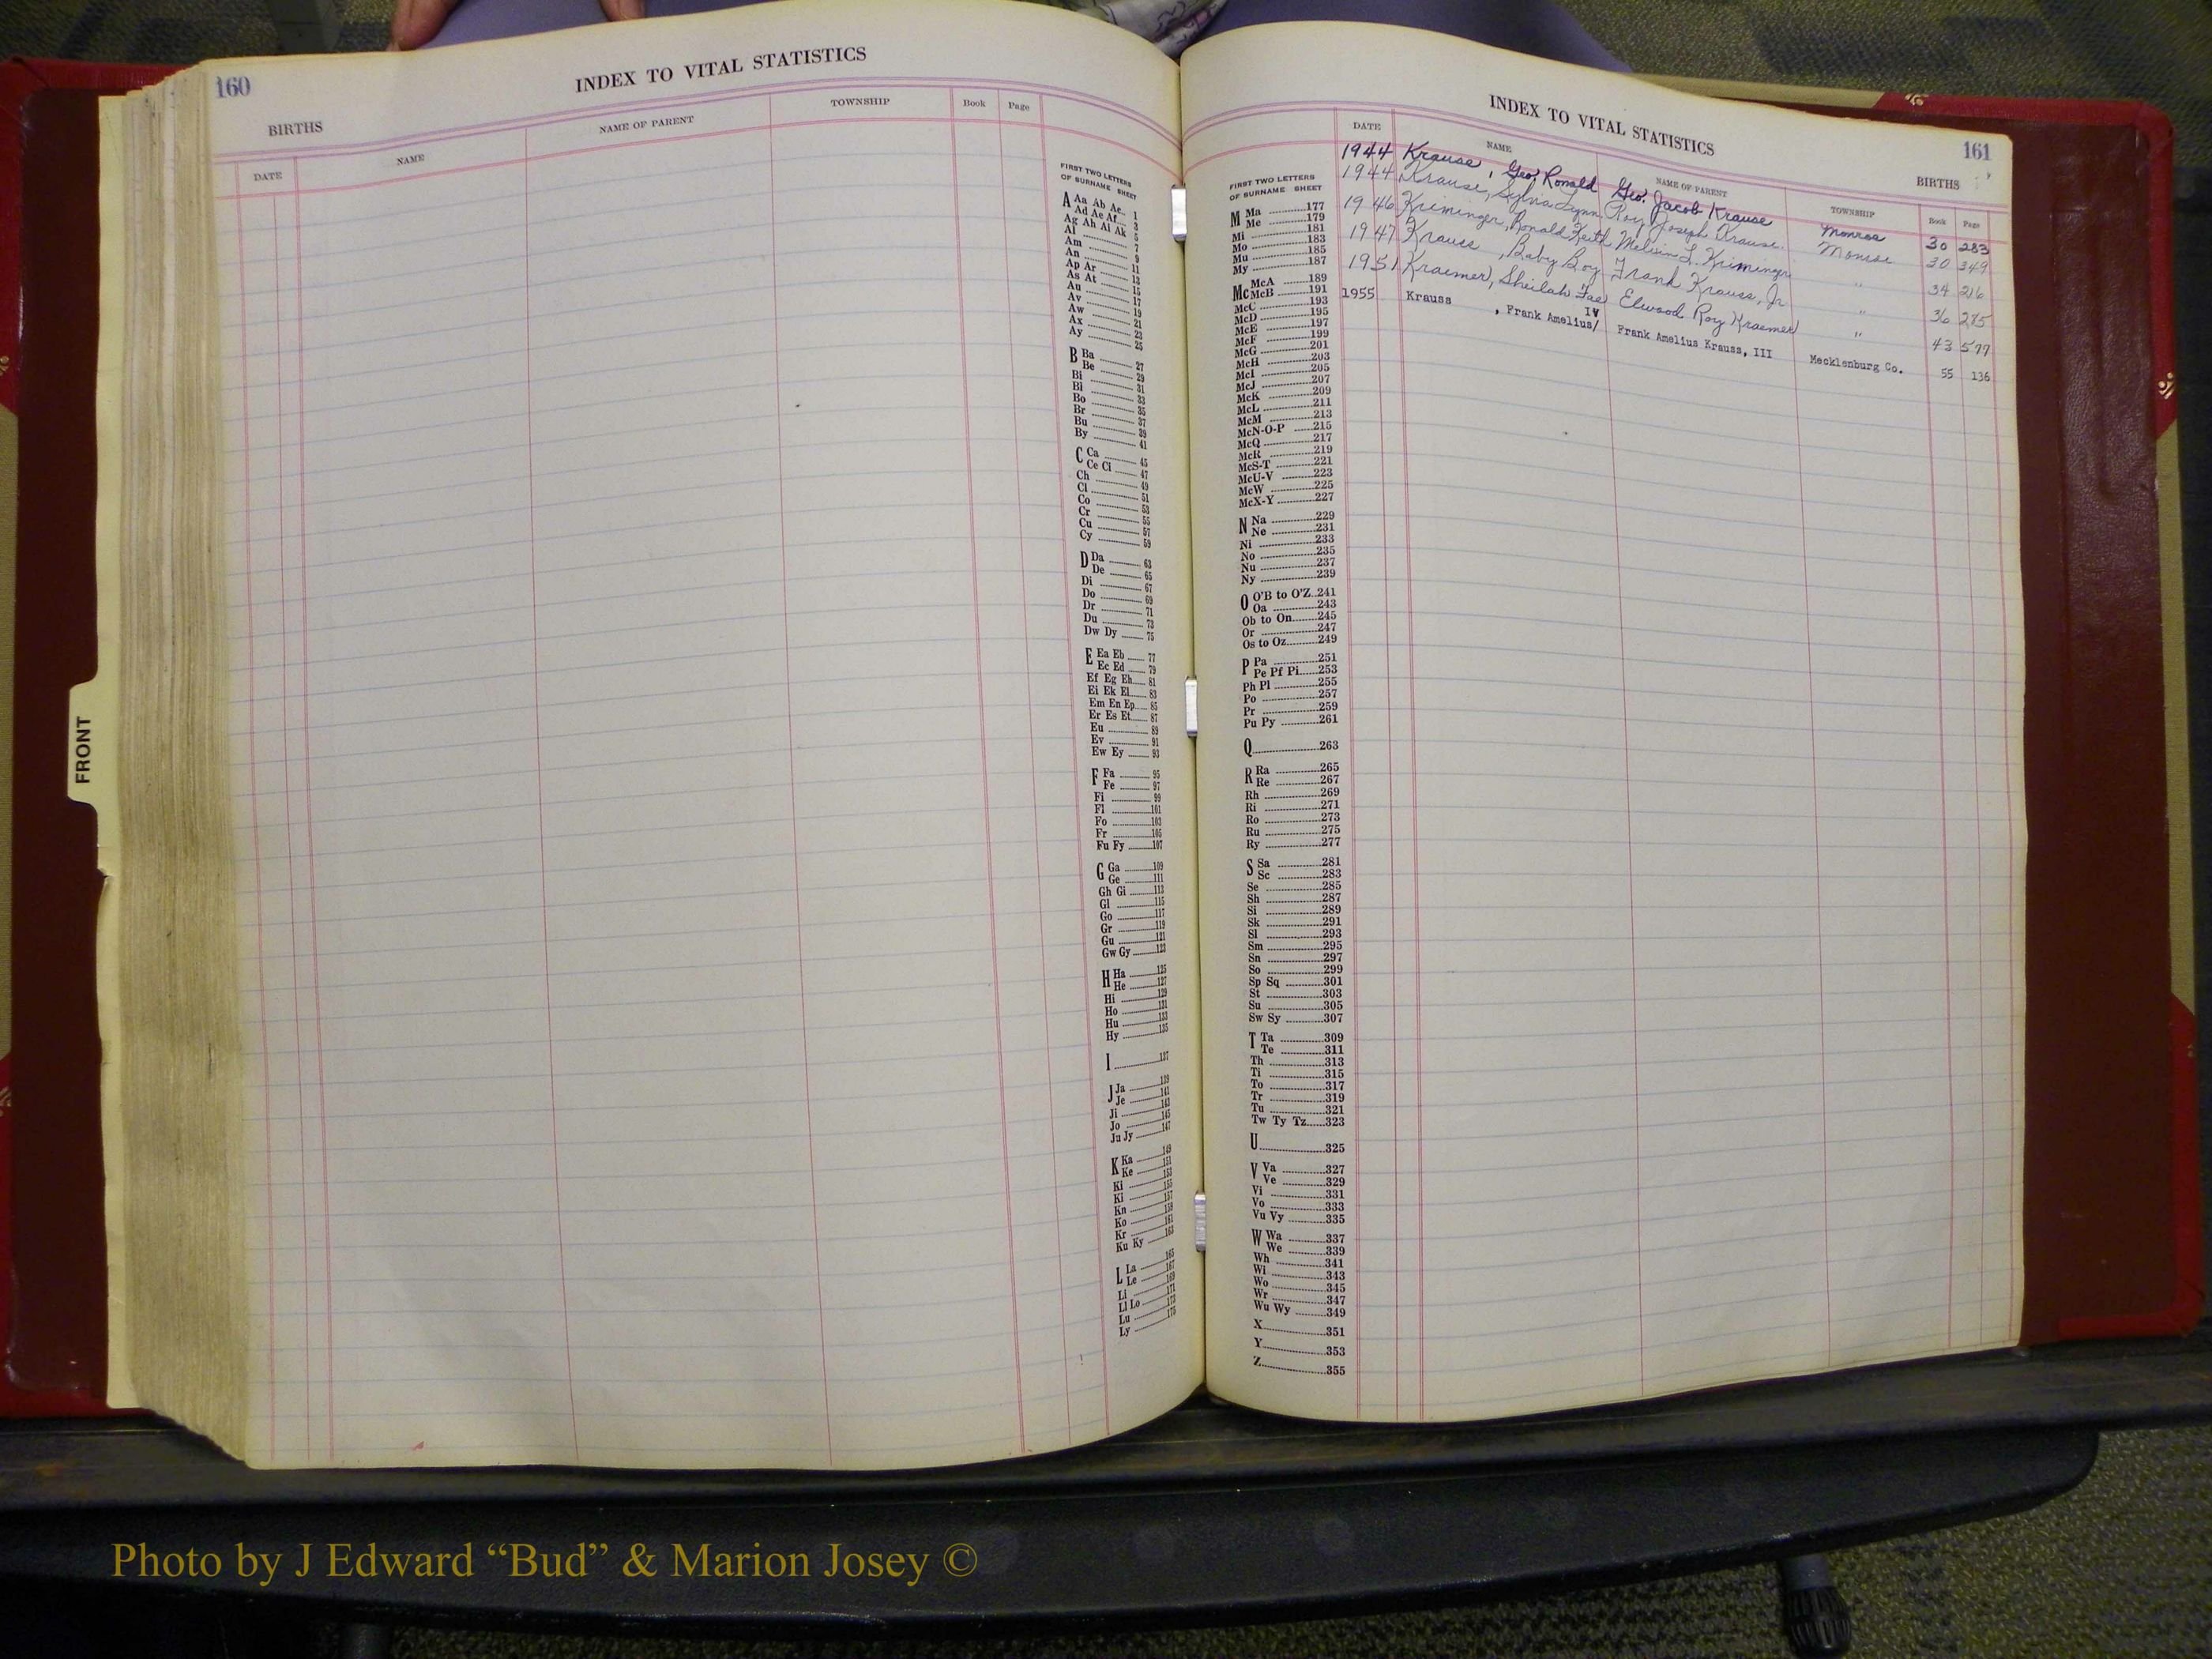 160
INDEX TO VITAL STATISTICS
BIRTHS
DATE NAME NAME OF PARENT TOWNSHIP Book Page
FIRST TWO LETTERS
OF SURNAME SHEET
A Aa Ab Ac 1
Ad Ae Af 3
Ag Ah Ai Ak 5
Al 7
Am 9
An 11
Ap Ar 13
As At 15
Au 17
Av 19
Aw 21
Ax 23
Ay 25
B Ba 27
Be 29
Bi 31
Bl 33
Bo 35
Br 37
Bu 39
By 41
C Ca 45
Ce Ci 47
Ch 49
Cl 51
Co 53
Cr 55
Cu 57
Cy 59
D Da 63
De 65
Di 67
Do 69
Dr 71
Du 73
Dw Dy 75
E Ea Eb 77
Ec Ed 79
Ef Eg Eh 81
Ei Ek El 83
Em En Ep 85
Er Es Et 87
Eu 89
Ev 91
Ew Ey 93
F Fa 95
Fe 97
Fi 99
Fl 101
Fo 103
Fr 105
Fu Fy 107
G Ga 109
Ge 111
Gh Gi 113
Gl 115
Go 117
Gr 119
Gu 121
Gw Gy 123
H Ha 125
He 127
Hi 129
Ho 131
Hu 133
Hy 135
I 137
J Ja 139
Je 141
Ji 143
Jo 145
Ju Jy 147
K Ka 149
Ke 151
Ki 153
Kl 155
Kn 157
Ko 159
Kr 161
Ku Ky 163
L La 165
Le 167
Li 169
Ll Lo 171
Lu 173
Ly 175
INDEX TO VITAL STATISTICS
161
BIRTHS
DATE NAME NAME OF PARENT TOWNSHIP Book Page
1944 Krause, Geo. Ronald Geo. Jacob Krause Monroe 30 283
1944 Krause, Sylvia Lynn Roy Joseph Krause Monroe 30 349
1946 Kriminger, Ronald Keith L. Kriminger " 34 216
1947 Krauss, Baby Boy Frank Krauss, Jr " 36 275
1951 Kraemer, Sheilah Fae Elwood Roy Kraemer " 43 577
1955 Krauss, Frank Amelius/ IV Frank Amelius Krauss, III Mecklenburg Co. 55 136
FIRST TWO LETTERS
OF SURNAME SHEET
M Ma 177
Me 179
Mi 181
Mo 183
Mu 185
My 187
Mc McA 189
McB 191
McC 193
McD 195
McE 197
McF 199
McG 201
McH 203
McI 205
McJ 207
McK 209
McL 211
McM 213
McN-O-P 215
McQ 217
McR 219
McS-T 221
McU-V 223
McW 225
McX-Y 227
N Na 229
Ne 231
Ni 233
No 235
Nu 237
Ny 239
O O'B to O'Z 241
Oa 243
Ob to On 245
Or 247
Os to Oz 249
P Pa 251
Pe Pf Pi 253
Ph Pl 255
Po 257
Pr 259
Pu Py 261
Q 263
R Ra 265
Re 267
Rh 269
Ri 271
Ro 273
Ru 275
Ry 277
S Sa 281
Sc 283
Se 285
Sh 287
Si 289
Sk 291
Sl 293
Sm 295
Sn 297
So 299
Sp Sq 301
St 303
Su 305
Sw Sy 307
T Ta 309
Te 311
Th 313
Ti 315
To 317
Tr 319
Tu 321
Tw Ty Tz 323
U 325
V Va 327
Ve 329
Vi 331
Vo 333
Vu Vy 335
W Wa 337
We 339
Wh 341
Wi 343
Wo 345
Wr 347
Wu Wy 349
X 351
Y 353
Z 355
FRONT
Photo by J Edward “Bud” & Marion Josey ©